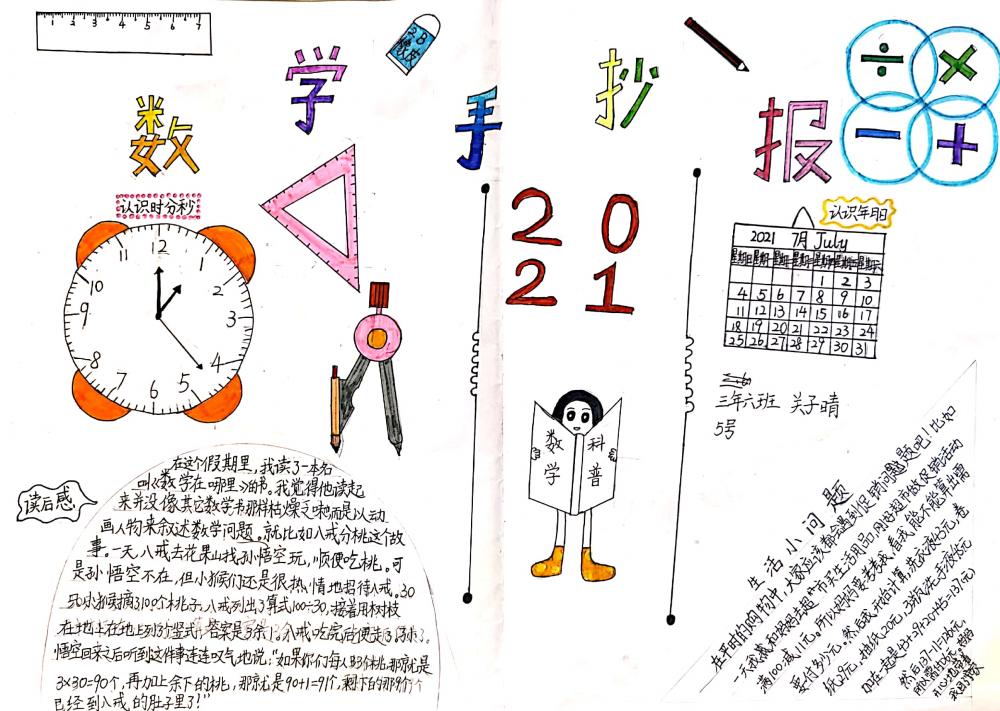 1 2 3 4 5 6 7
2B
橡皮
数学手抄报
÷ ×
− +
认识时分秒
12
1
2
3
4
5
6
7
8
9
10
11
2 0
2 1
认识年月日
2021 7月 July
星期日 星期一 星期二 星期三 星期四 星期五 星期六
1 2 3
4 5 6 7 8 9 10
11 12 13 14 15 16 17
18 19 20 21 22 23 24
25 26 27 28 29 30 31
三年六班 关子晴
5号
数学
科普
读后感
在这个假期里，我读了一本名
叫《数学在哪里》的书。我觉得他读起
来并没像其它数学书那样枯燥乏味而是以动
画人物来叙述数学问题。就比如八戒分桃这个故
事。一天，八戒去花果山找孙悟空玩，顺便吃桃。可
是孙悟空不在，但小猴们还是很热情地招待八戒。30
只小猴摘了100个桃子，八戒列出了算式100÷30，接着用树枝
在地上在地上列了竖式，答案是3余1。八戒吃完后便走了
悟空回来之后听到这件事连连叹气地说：“如果你们每人3个桃，那就是
3×30=90个，再加上余下的桃，那就是90+1=91个，剩下的那9个
已经到八戒的肚子里了！”
生活小问题
在平时的购物中，大家应该都会遇到促销问题吧！比如
一天我和妈妈去超市买生活用品，刚好超市做促销活动
满100减11元。所以妈妈要考考我，看我能不能算出需
要付多少元。然后我开始计算，洗衣液43元，卷
纸29元，抽纸20元，3瓶洗手液45元
加在一起是43+29+20+45=137(元)
然后137-11=126元，